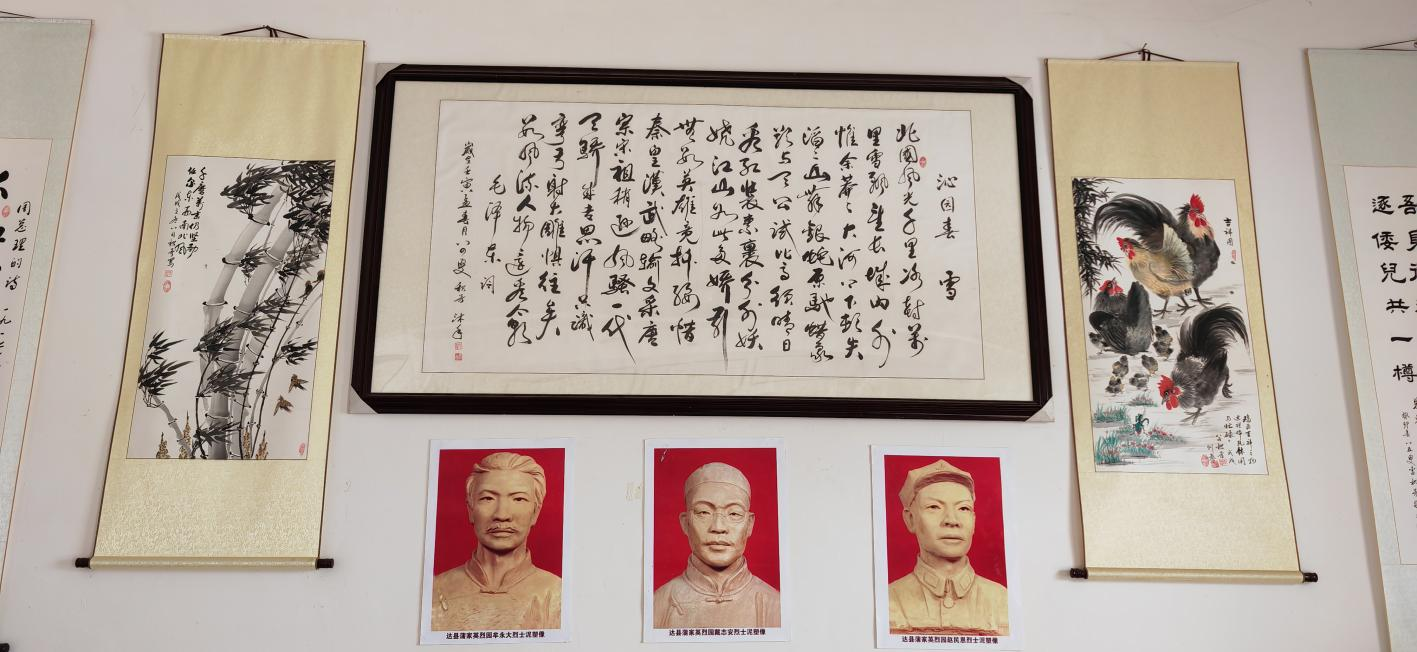 周总理的诗
一九一七
千磨万击仍坚劲
任尔东西南北风
沁园春 雪
北國风光千里冰封万
里雪飘望长城内外
惟余莽々大河上下顿失
滔々山舞银蛇原驰蜡象
欲与天公试比高须晴日
看红装素裹分外妖
娆江山如此多娇引
无数英雄竞折腰惜
秦皇漢武略输文采唐
宗宋祖稍逊风骚一代
天骄成吉思汗只識
弯弓射大雕惧往矣
数风流人物还看今朝
毛泽东词
吉祥图
逐倭兒共一樽
达县蒲家英烈园牟永大烈士泥塑像
达县蒲家英烈园戴志安烈士泥塑像
达县蒲家英烈园赵民恩烈士泥塑像